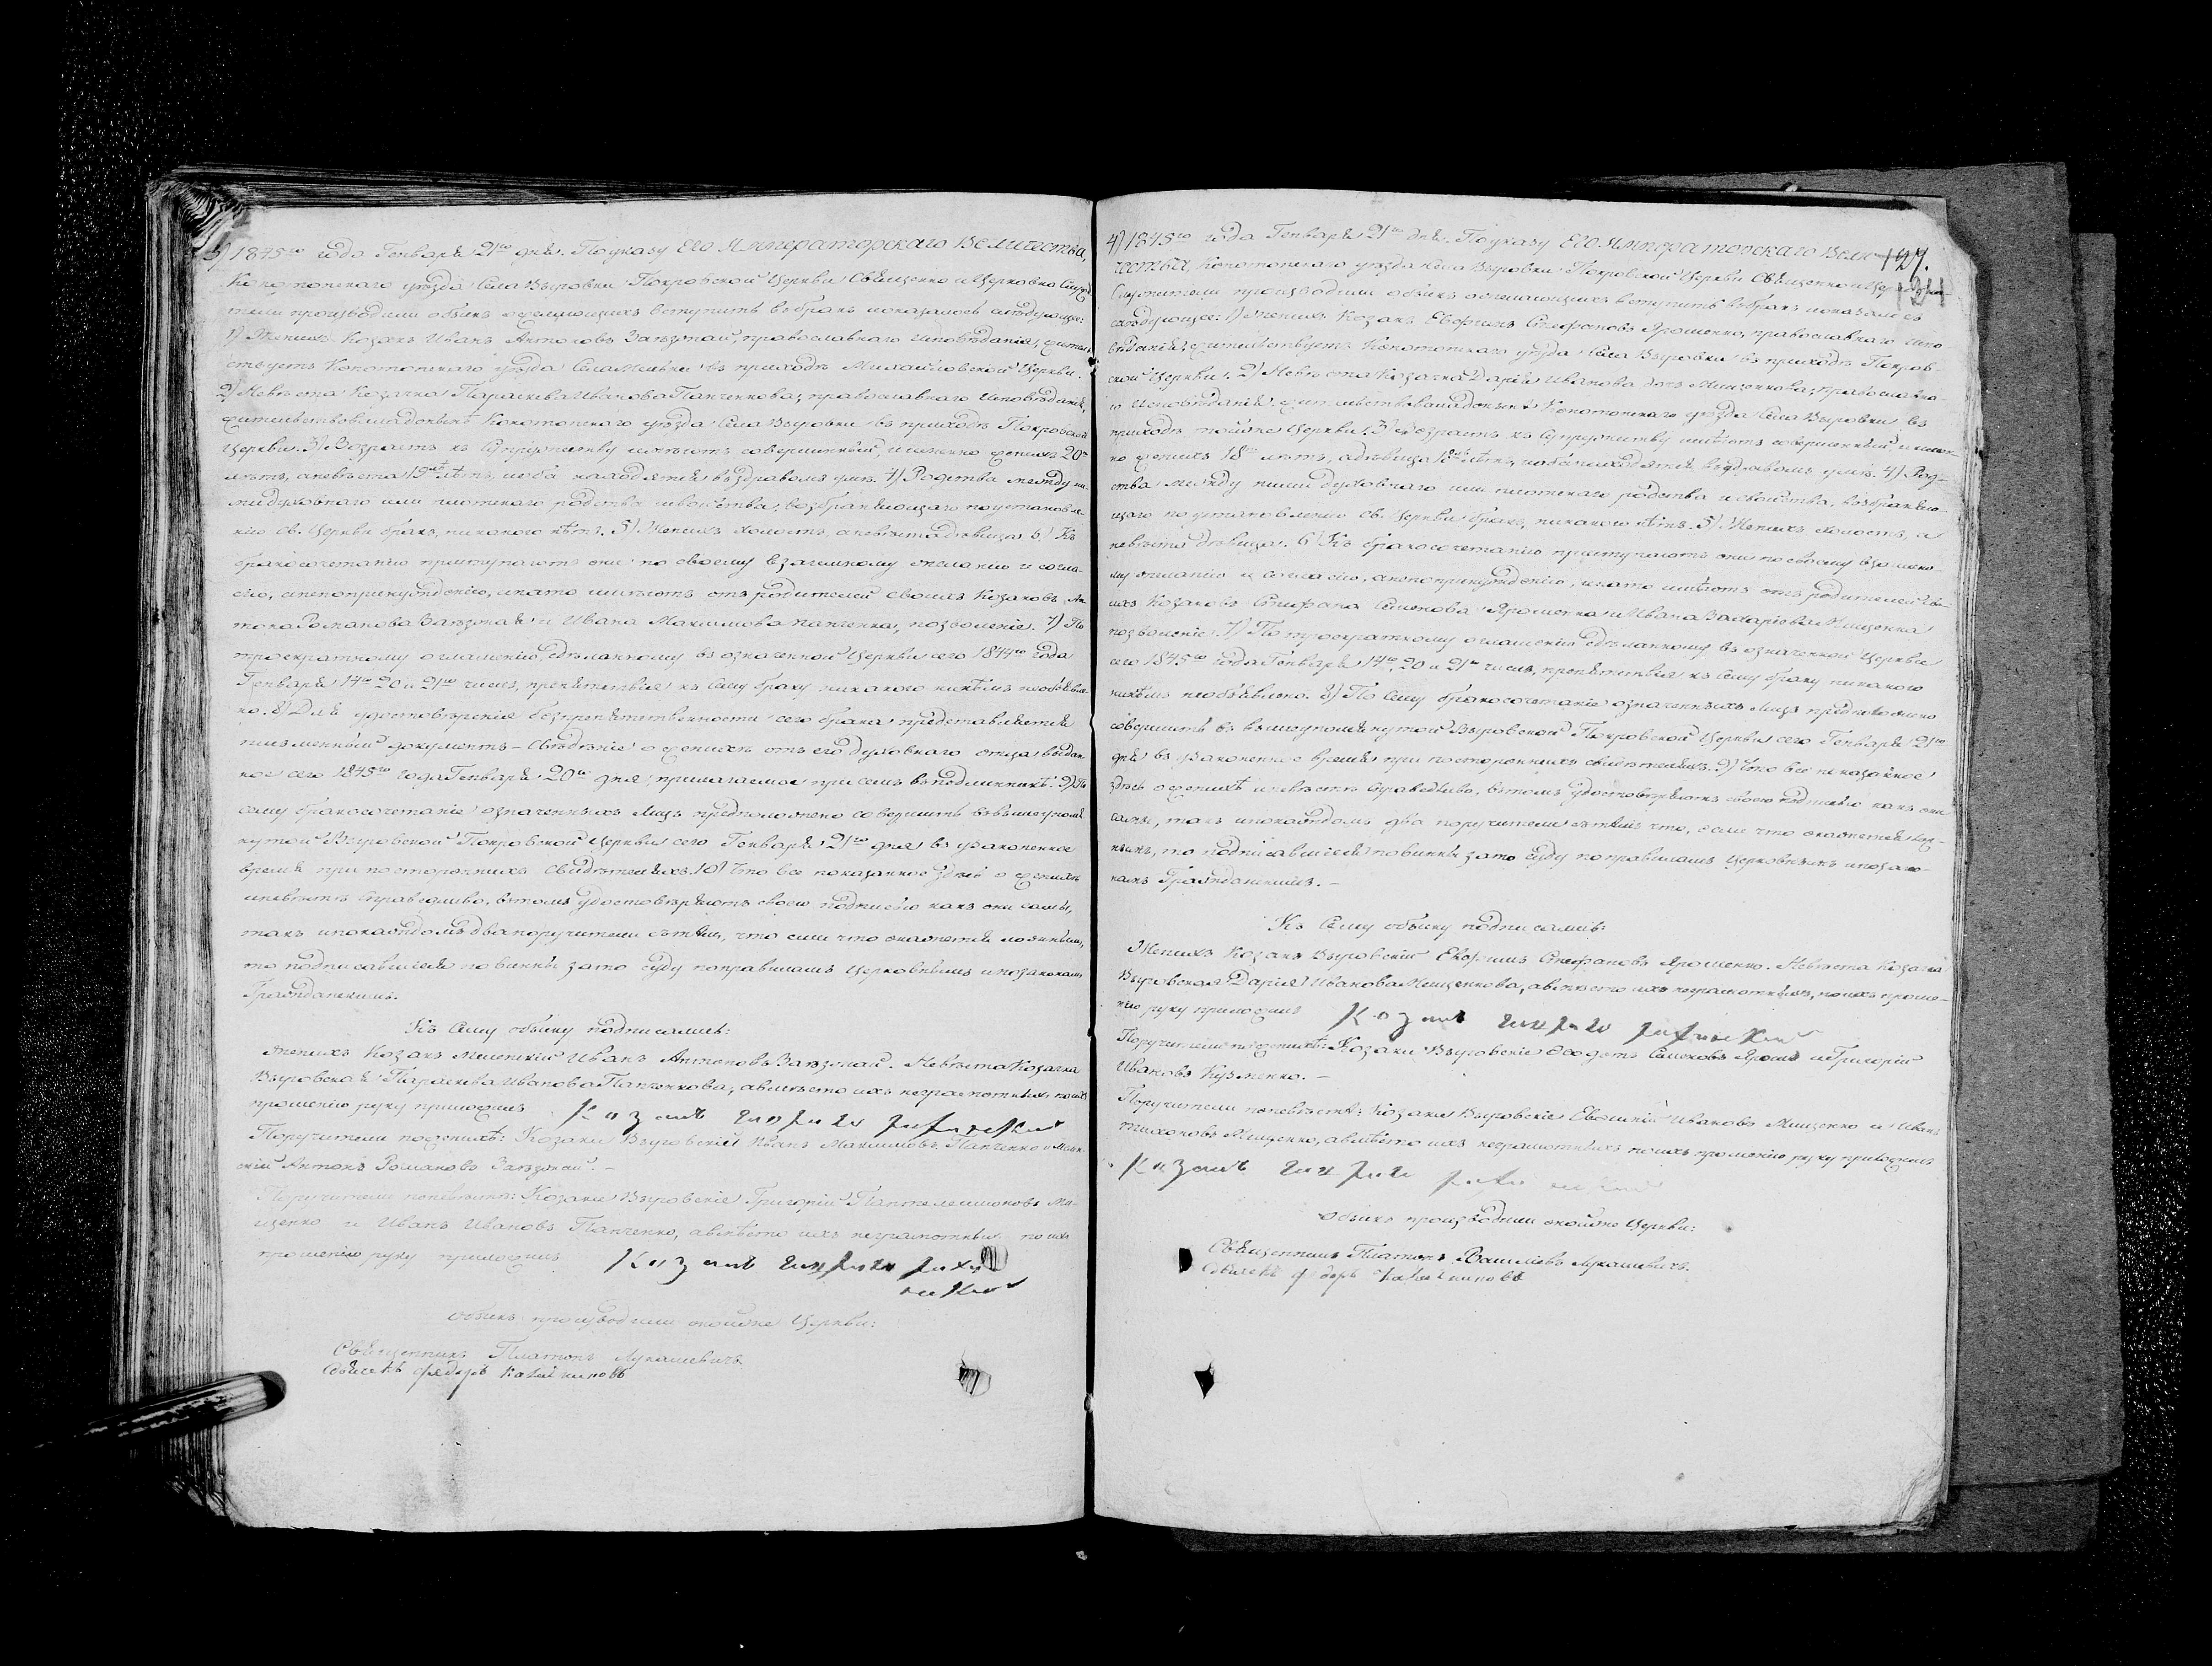 3) 1845го года Генваря 21го дня. По указу Его Императорскаго Величества,
Конотопскаго уѣзда Села Выровки Покровской Церкви Священно и Церковно Служи-
тели производили обыскъ о желающихъ вступить въ бракъ и оказалось слѣдующее:
1) Женихъ Козакъ Иванъ Антоновъ православнаго исповѣданія, житель-
ствуетъ Конотопскаго уѣзда Села въ приходѣ Михайловской Церкви.
2) Невѣста Козачка Параскева Иванова Панченкова, православнаго исповѣданія,
жительствовала донынѣ Конотопскаго уѣзда Села Выровки въ приходѣ Покровской
Церкви. 3) Возрастъ къ Супружеству имѣютъ совершенный, и именно женихъ 20ть
лѣтъ, а невѣста 19ть лѣтъ, и оба находятся въ здравомъ умѣ. 4) Родства между ни-
ми духовнаго или плотскаго родства и свойства, возбраняющаго по установле-
нію св. Церкви бракъ, никакого нѣтъ. 5) Женихъ холостъ, а невѣста дѣвица. 6) Къ
бракосочетанію приступаютъ они по своему взаимному желанію и согла-
сію, а не по принужденію, и на то имѣютъ отъ родителей своихъ Козаковъ Ан-
тона Романова и Ивана Максимова Панченка, позволеніе. 7) По
троекратному оглашенію, сдѣланному въ означенной Церкви сего 1844го года
Генваря 14го 20 и 21го чиселъ, препятствія къ сему браку никакого никѣмъ не объявле-
но. 8) Для удостовѣренія безпрепятственности сего брака представляется
письменный документъ – свѣдѣніе о женихѣ отъ его духовнаго отца выдан-
ное сего 1845го года Генваря 20го дня, прилагаемое при семъ въ подлинникѣ. 9) По
сему бракосочетаніе означенныхъ лицъ предположено совершить въ вышеупомя-
нутой Выровской Покровской Церкви сего Генваря 21го дня въ узаконенное
время при постороннихъ свидѣтеляхъ. 10) Что все показанное здѣсь о женихѣ
и невѣстѣ справедливо, въ томъ удостовѣряютъ своею подписью какъ они сами,
такъ и по каждомъ два поручители съ тѣмъ, что если что окажется ложнымъ,
то подписавшіеся повинны за то суду по правиламъ Церковнымъ и по законамъ
Гражданскимъ.
Къ Сему обыску подписались:
Женихъ Козакъ Иванъ Антоновъ Невѣста Козачка
Выровская Параскева Иванова Панченкова, а вмѣсто ихъ неграмотныхъ по ихъ
прошенію руку приложилъ Козакъ
Поручители по женихѣ: Козаки Выровскій Иванъ Максимовъ Панченко и
Антонъ Романовъ
Поручители по невѣстѣ: Козаки Выровскіе Григорій Пантелеимоновъ Ми-
щенко и Иванъ Ивановъ Панченко, а вмѣсто ихъ неграмотныхъ по ихъ
прошенію руку приложилъ Козакъ
Обыскъ производили оной же Церкви:
Священникъ Платонъ Лукашевичъ
Дьячекъ Федоръ
4) 1845го года Генваря 21го дня. По указу Его Императорскаго Вели- 127.
чества, Конотопскаго уѣзда Села Выровки Покровской Церкви Священно и Церковно-
Служители производили обыскъ о желающихъ вступить въ бракъ и оказалось
слѣдующее: 1) Женихъ Козакъ Евфимъ Стефановъ Ярошенко, православнаго испо-
вѣданія, жительствуетъ Конотопскаго уѣзда Села Выровки въ приходѣ Покров-
ской Церкви. 2) Невѣста Козачка Дарія Иванова дочь Мищенкова, православна-
го исповѣданія жительствовала донынѣ Конотопскаго уѣзда Села Выровки въ
приходѣ той же Церкви. 3) Возрастъ къ Супружеству имѣютъ совершенный, и имен-
но женихъ 18ть лѣтъ, а дѣвица 18ть лѣтъ, и оба находятся въ здравомъ умѣ. 4) Род-
ства между ними духовнаго или плотскаго родства и свойства, возбраняю-
щаго по установленію св. Церкви бракъ, никакого нѣтъ. 5) Женихъ холостъ, а
невѣста дѣвица. 6) Къ бракосочетанію приступаютъ они по своему взаимно-
му желанію и согласію, а не по принужденію, и на то имѣютъ отъ родителей сво-
ихъ Козаковъ Стефана Семенова Ярошенка и Ивана Захаріева Мищенка
позволеніе. 7) По троекратному оглашенію сдѣланному въ означенной Церкви
сего 1845го года Генваря 14го, 20 и 21го чиселъ, препятствія къ сему браку никакого
никѣмъ не объявлено. 8) По сему бракосочетаніе означенныхъ лицъ предположено
совершить въ вышеупомянутой Выровской Покровской Церкви сего Генваря 21го
дня въ узаконенное время при постороннихъ свидѣтеляхъ. 9) Что все показанное
здѣсь о женихѣ и невѣстѣ справедливо, въ томъ удостовѣряютъ своею подписью какъ они
сами, такъ и по каждомъ два поручители съ тѣмъ что, если что окажется лож-
нымъ, то подписавшіеся повинны за то суду по правиламъ Церковнымъ и по зако-
намъ Гражданскимъ. –
Къ Сему обыску подписались:
Женихъ Козакъ Выровскій Евфимъ Стефановъ Ярошенко. Невѣста Козачка
Выровская Дарія Иванова Мищенкова, а вмѣсто ихъ неграмотныхъ, по ихъ проше-
нію руку приложилъ Козакъ
Поручители по женихѣ: Козаки Выровскіе Ѳеодотъ Семеновъ и Григорій
Ивановъ Кузменко. –
Поручители по невѣстѣ: Козаки Выровскіе Ивановъ Мищенко и Иванъ
Тихоновъ Мищенко, а вмѣсто ихъ неграмотныхъ по ихъ прошенію руку приложилъ
Козакъ
Обыскъ производили оной же Церкви:
Священникъ Платонъ Василіевъ Лукашевичъ.
Дьячекъ Федоръ